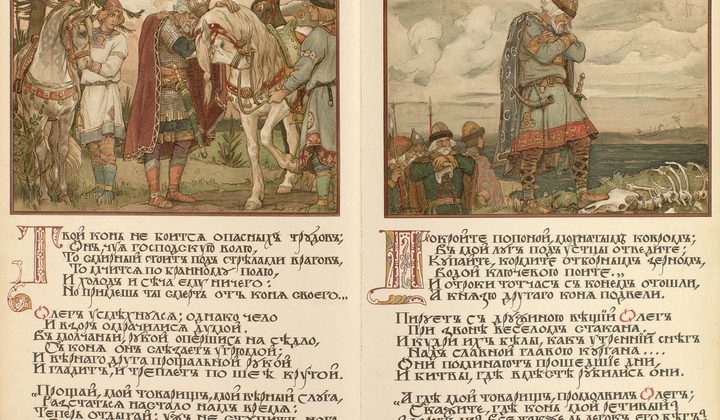 Твой конь не боится опасныхъ трудовъ;
Онъ, чуя господскую волю,
То смирный стоитъ подъ стрѣлами враговъ,
То мчится по бранному полю,
И холодъ и сѣча ему ничего:
Но примешь ты смерть отъ коня своего...
Олегъ усмѣхнулся; однако чело
И взоръ омрачилися думой.
Въ молчаньи, рукой опершись на сѣдло,
Съ коня онъ слѣзаетъ угрюмой;
И вѣрнаго друга прощальной рукой
И гладитъ, и треплетъ по шеѣ крутой.
„Прощай, мой товарищъ, мой вѣрный слуга,
Разстаться настало намъ время:
Теперь отдыхай! ужъ не ступитъ нога
Покройте попоной, мохнатымъ ковромъ;
Въ мой лугъ подъ устцы отведите;
Купайте, кормите отборнымъ зерномъ,
Водой ключевою поите...
И отроки тотчасъ съ конемъ отошли,
А князю другаго коня подвели.
Пируетъ съ дружиною вѣщій Олегъ
При звонѣ веселомъ стакана.
И кудри ихъ бѣлы, какъ утренній снѣгъ
Надъ славной главою кургана....
Они поминаютъ прошедшіе дни,
И битвы, гдѣ вмѣстѣ рубились они.
„А гдѣ мой товарищъ, продолвилъ Олегъ;
Скажите, гдѣ конь мой ретивый?